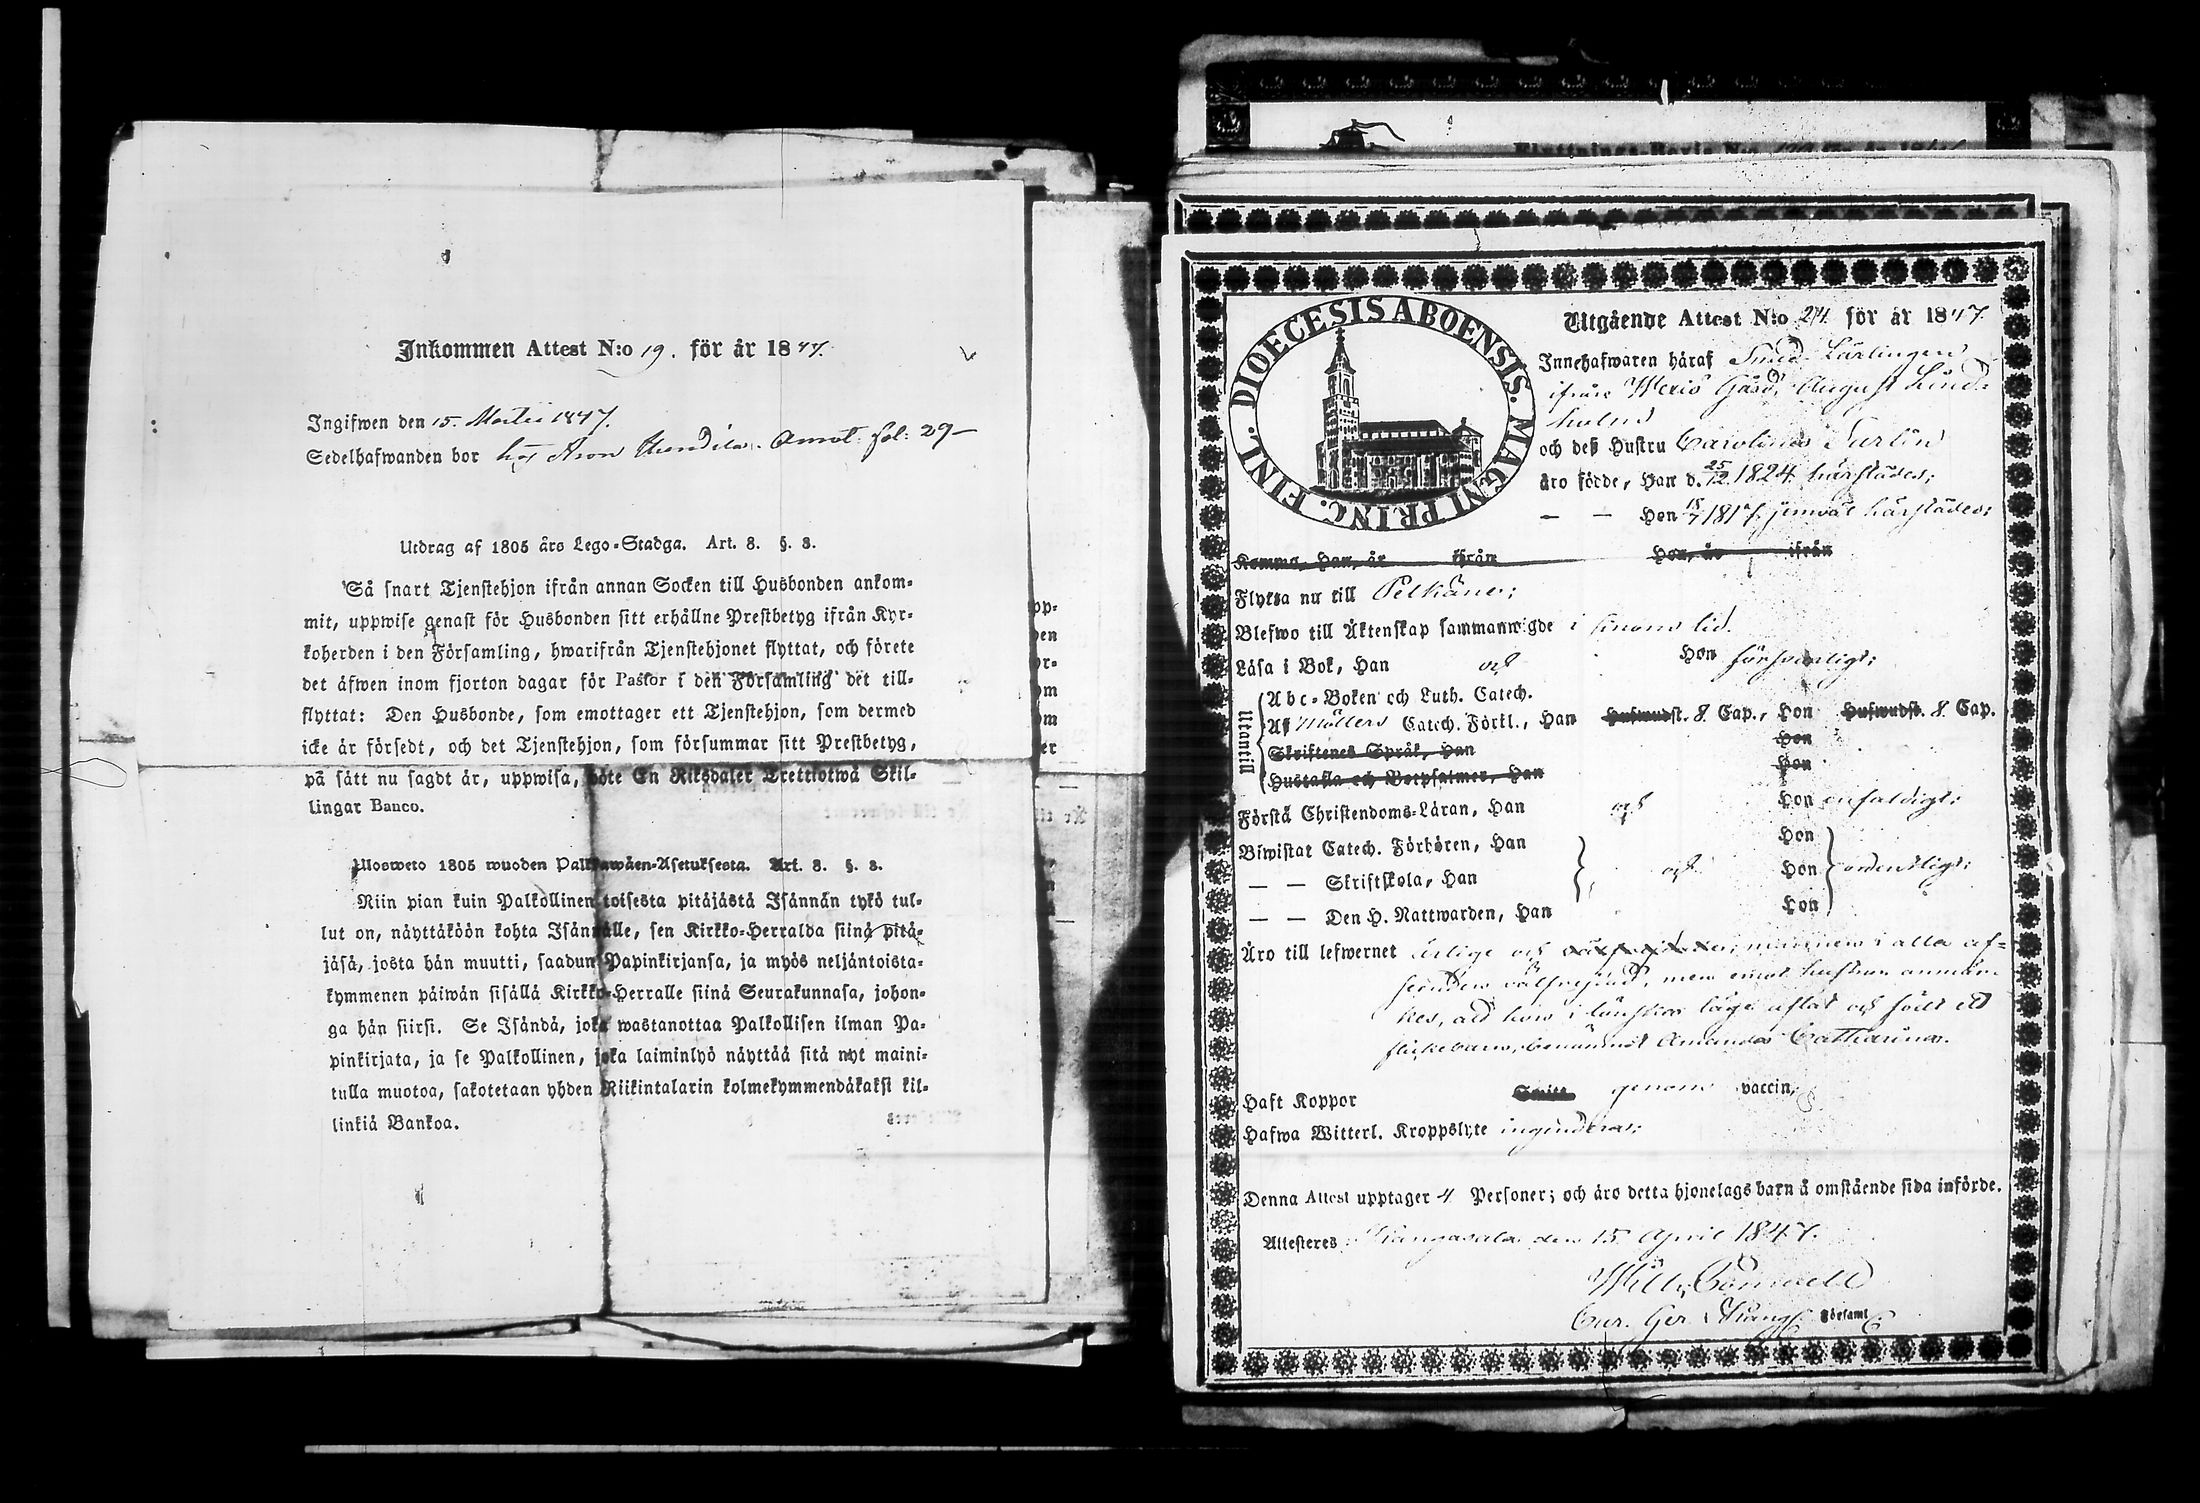 Inkommen Attest N:o 19. för år 1847.
Ingifwen den 15. Martii 1847.
Sedelhafwanden bor hos Aron fol: 29
Utdrag af 1805 års Lego-Stadga. Art. 8. §. 3.
Så snart Tjenstehjon ifrån annan Socken till Husbonden ankom-
mit, uppwise genast för Husbonden sitt erhållne Prestbetyg ifrån Kyr-
koherden i den Församling, hwarifrån Tjenstehjonet flyttat, och förete
det äfwen inom fjorton dagar för Pastor i den Församling det till-
flyttat: Den Husbonde, som emottager ett Tjenstehjon, som dermed
icke är försedt, och det Tjenstehjon, som försummar sitt Prestbetyg,
på sätt nu sagdt är, uppwisa, böte En Riksdaler Trettiotwå Skil-
lingar Banco.
Ulosweto 1805 wuoden Palkkawäen-Asetuksesta. Art. 8. §. 3.
Niin pian kuin Palkollinen toisesta pitäjästä Isännän tykö tul-
lut on, näyttäköön kohta Isännälle, sen Kirkko-Herralda siinä pitä-
jäsä, josta hän muutti, saadun Papinkirjansa, ja myös neljäntoista-
kymmenen päiwän sisällä Kirkko-Herralle siinä Seurakunnasa, johon-
ga hän siirsi. Se Isändä, joka wastanottaa Palkollisen ilman Pa-
pinkirjata, ja se Palkollinen, joka laiminlyö näyttää sitä nyt maini-
tulla muotoa, sakotetaan yhden Riikintalarin kolmekymmendäkaksi kil-
linkiä Bankoa.
DIOECESIS ABOENSIS. MAGNI PRINC. FINL.
Utgående Attest N:o 24 för år 1847.
Innehafwaren häraf Smed Lärlingen
ifrån Weris Gård, August Lind-
holm
och deß Hustru Carolina
äro födde, Han d. 25/12 1824 härstädes;
— — Hon 18/7 1817, jemväl härstädes;
Komma, Han, år ifrån Hon, år ifrån
Flytta nu till Pelkäne;
Blefwo till Äktenskap sammanwigde i sinom tid.
Läsa i Bok, Han och Hon försvarligt;
Utantill
Abc-Boken och Luth. Catech.
Af Möllers Catech. Förkl., Han Hufwudst. 8 Cap., Hon Hufwudst. 8 Cap.
Skriftenes Språk, Han Hon
Hustafla och Botpsalmer, Han Hon
Förstå Christendoms-Läran, Han och Hon enfaldigt;
Biwistat Catech. Förhören, Han Hon
— — Skriftskola, Han och Hon ordentligt;
— — Den H. Nattwarden, Han Hon
Äro till lefwernet ärlige och mannen i alla af-
seenden välfrejdad, men emot hustrun anmär-
kes, att hon i lönskaläge aflat och födt ett
flickebarn, benämndt Amanda Catharina.
Haft Koppor Smitt. genom vaccin,
Hafwa Witterl. Kroppslyte ingendera;
Denna Attest upptager 4 Personer; och äro detta hjonelags barn å omstående sida införde.
Attesteres, Kangasala den 15 April 1847.
Wilh.
Cur. Ger. i Kang. Församl.